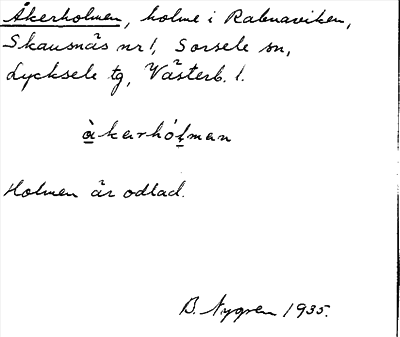 Åkerholmen, holme i Rabnaviken,
Skansnäs nr 1, Sorsele sn,
Lycksele tg, Västerb. l.
åkarhólman
Holmen är odlad.
B. Nygren 1935.